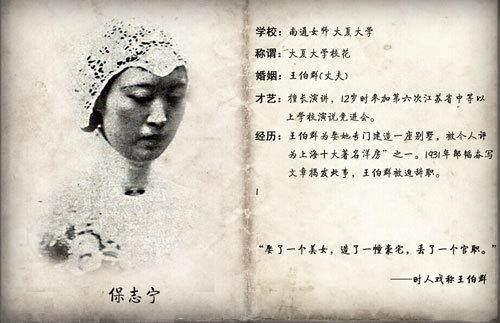 学校：南通女师 大夏大学
称谓：大夏大学校花
婚姻：王伯群（丈夫）
才艺：擅长演讲，12岁时参加第六次江苏省中等以
上学校演说竞进会。
经历：王伯群为娶她专门建造一座别墅，被个人评
为上海十大著名洋房”之一。1931年邹韬奋写
文章揭发此事，王伯群被迫辞职。
“娶了一个美女，造了一幢豪宅，丢了一个官职。”
——时人戏称王伯群
保志宁